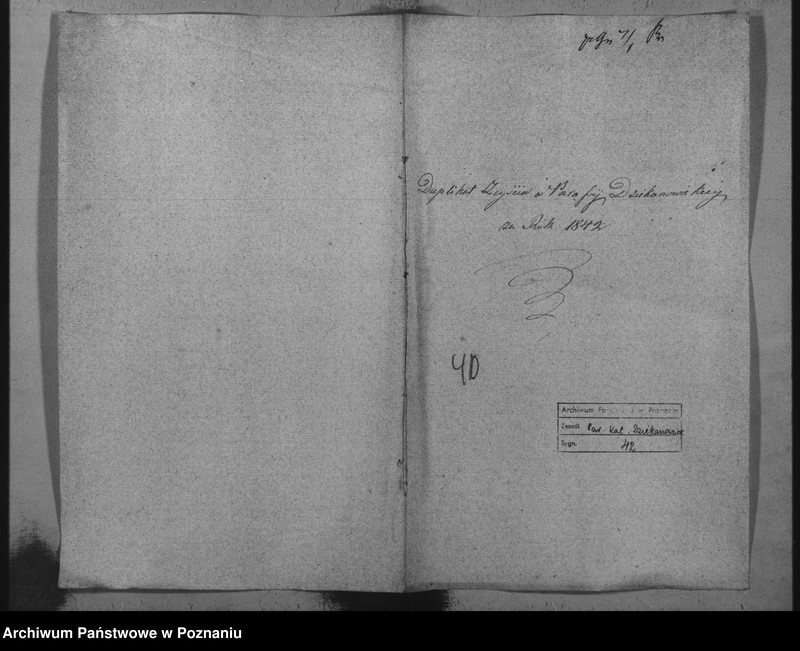 Duplikat Zejścia z Parafij Dziekanowskiej
za Rok 1842
40
Archiwum Państwowe w Poznaniu
Zespół Par. Kat. Dziekanowice
Sygn. 42
Archiwum Państwowe w Poznaniu